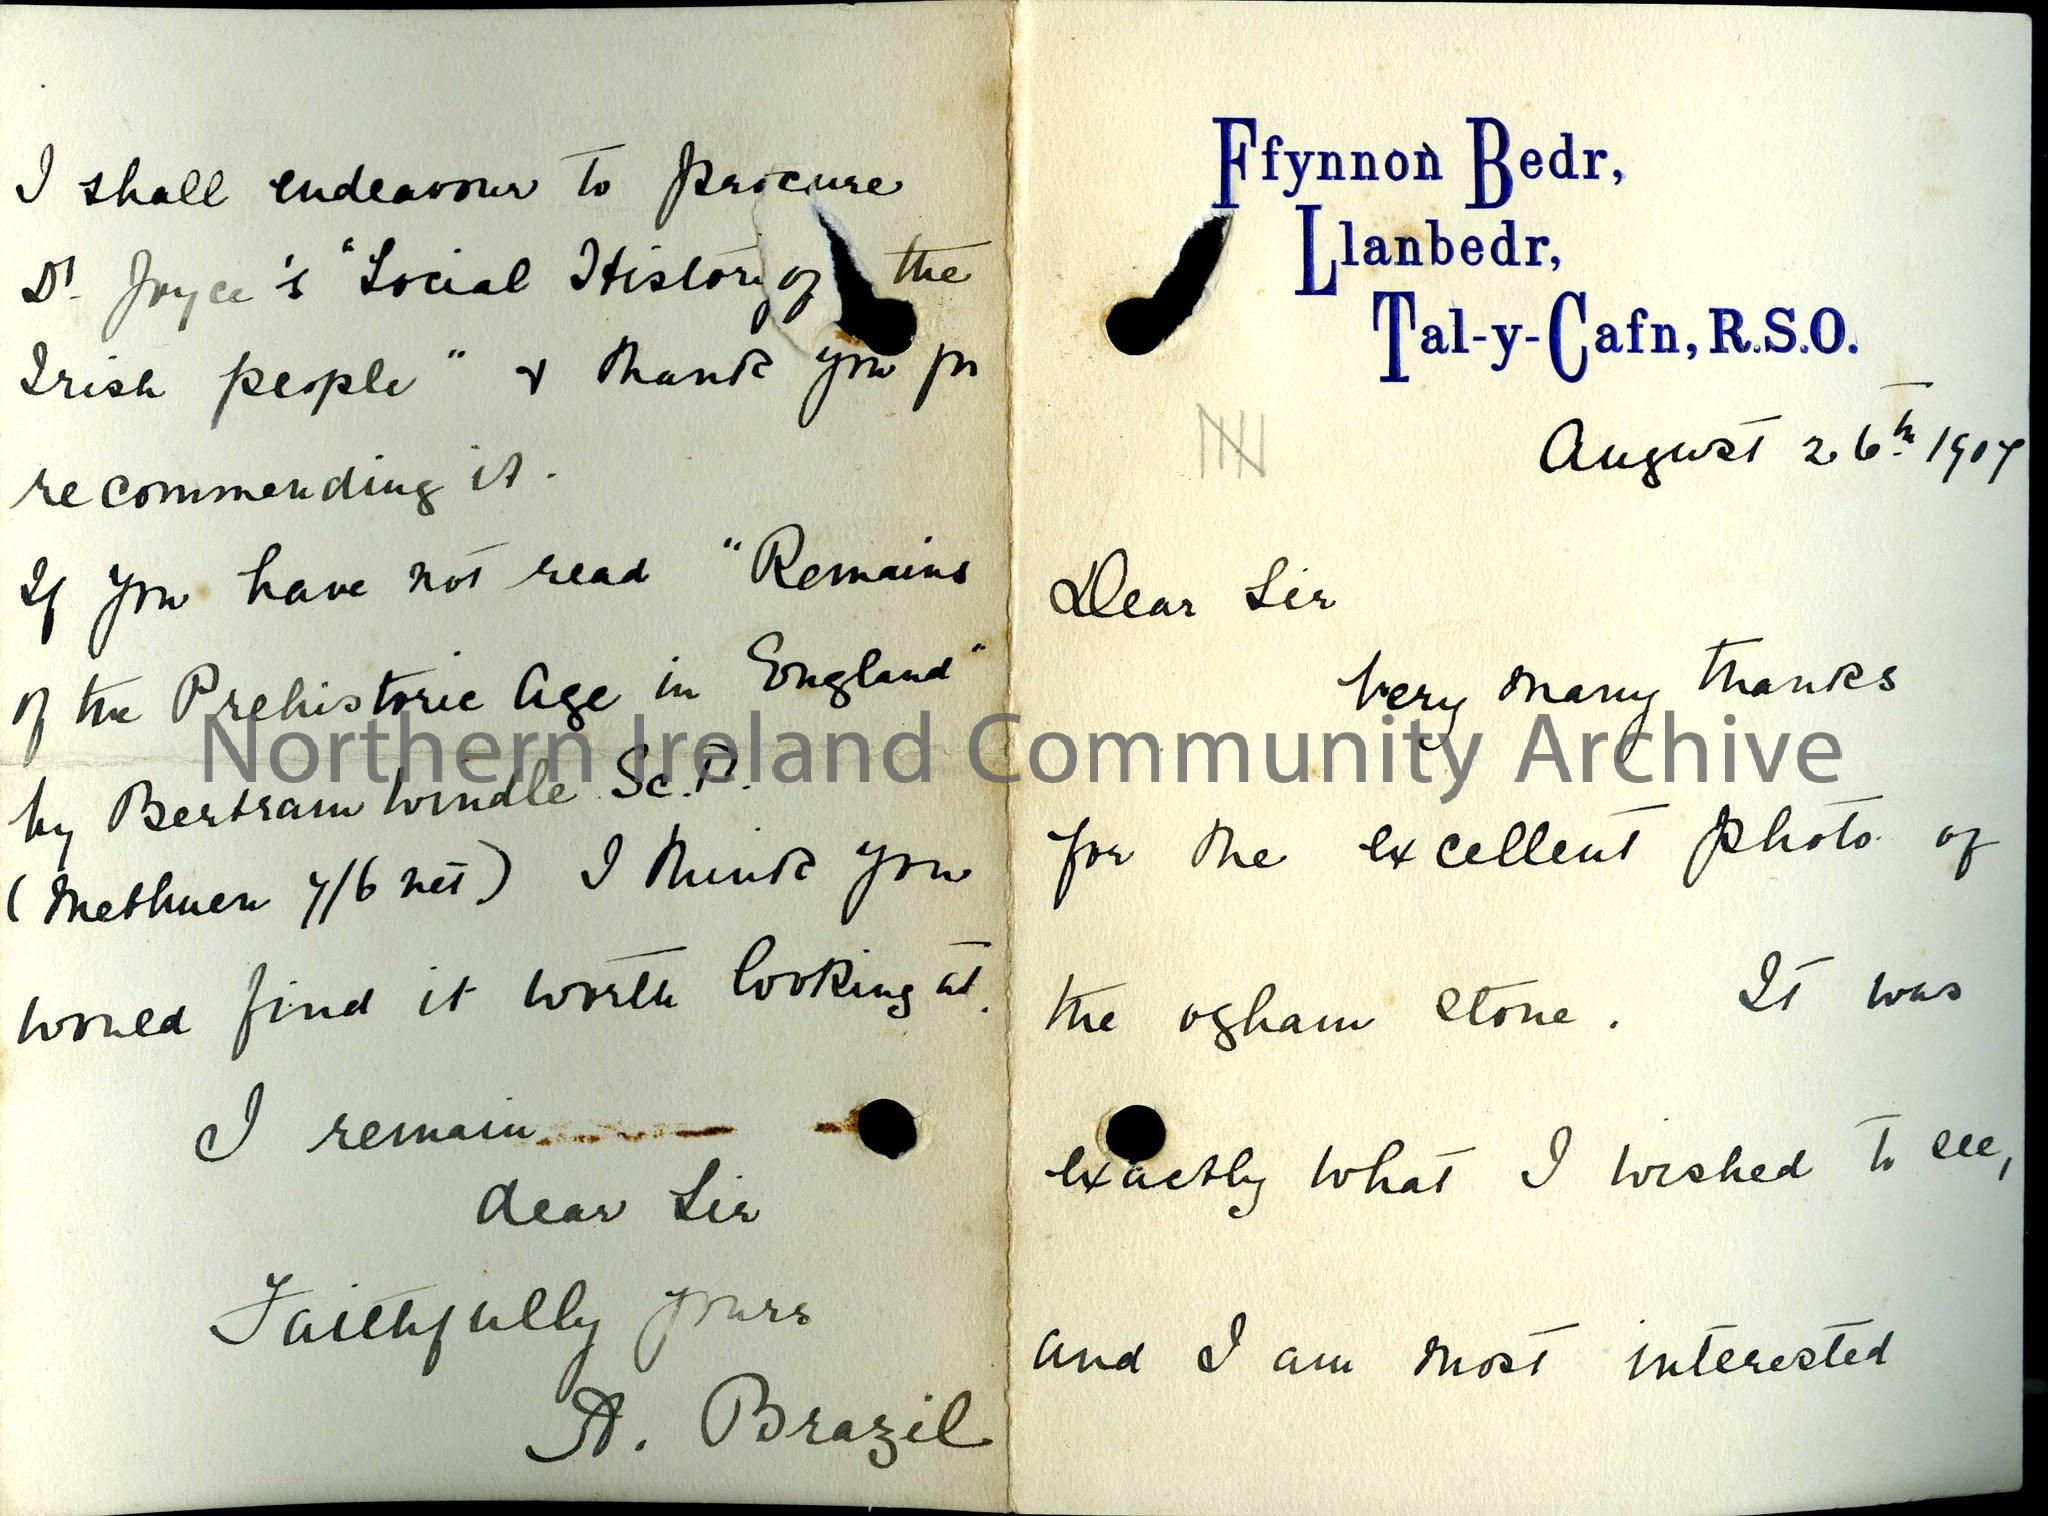 Ffynnon Bedr,
Llanbedr,
Tal-y-Cafn, R.S.O.
August 26th 1907
Dear Sir
Very many thanks
for the excellent photo of
the ogham stone. It was
exactly what I wished to see,
and I am most interested
I shall endeavour to procure
Dr. Joyce's "Social History of the
Irish people" & thank you for
recommending it.
If you have not read "Remains
of the Prehistoric Age in England"
by Bertram Windle Sc.D.
(Methuen 7/6 net) I think you
would find it worth looking at.
I remain
dear Sir
Faithfully yours
A. Brazil
Northern Ireland Community Archive